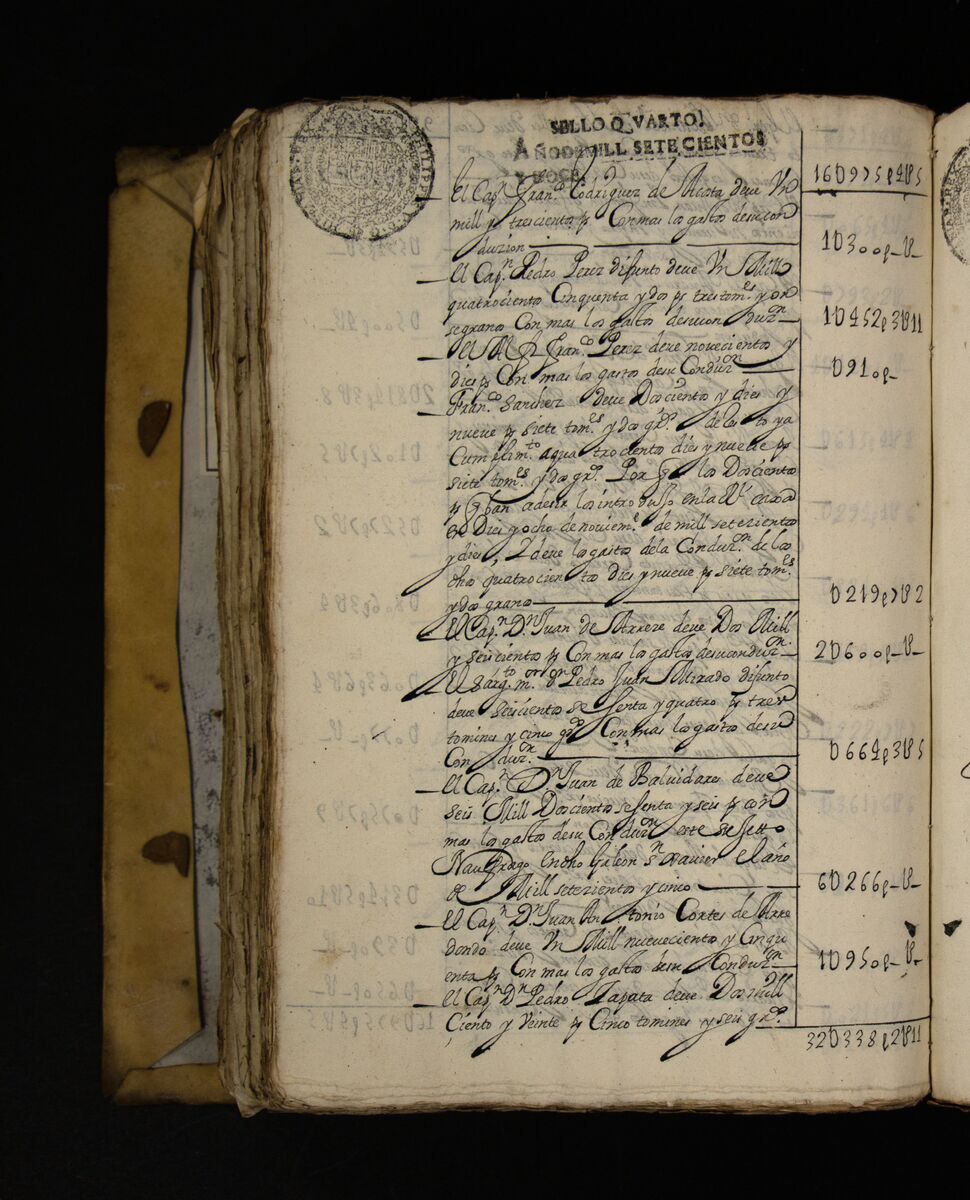 SELLO QVARTO!
AÑO DE MILL SETECIENTOS
Y DOCE
16U975p4U5
El Cap.n Fran.co Rodriguez de Acosta deve Vn
mill y trescientos ps Con mas los gastos desu con
duzion
1U300p_U_
El Cap.n Pedro Perez difunto deve Vn Mill
quatrocientos Cinquenta y dos ps tres tom.es y on
se granos Con mas los gastos desu con duz.on
1U452p3U11
El Fran.co Perez deve novecientos y
dies ps Con mas los gastos desu Conduz.on
U910p_
Fran.co Sanchez deve Doscientos y dies y
nueve ps siete tom.es y dos gr.s de los
Cumplim.to a quatrocientos dies y nueve ps
siete tom.es y dos gr.s Por q los Doscientos
ps introdusso en la R.l caxa
en Dies y ocho de noviem.e de mill setezientos
y dies, deve los gastos dela Conduz.on de los
chos quatrocientos dies y nueve ps siete tom.es
y dos granos
U219p7U2
El Cap.n D.n Juan de Arreze deve Dos Mill
y seiscientos ps Con mas los gastos desu conduz.on
2U600p_U_
El Sarg.to m.or D.n Pedro Juan Mirado difunto
deve seiscientos sesenta y quatro ps tres
tomines y cinco gr.s Con mas los gastos desu
Con duz.on
U664p3U5
El Cap.n D.n Juan de Balvidares deve
seis Mill Doscientos sesenta y seis ps con
mas los gastos desu Conduz.on este
Naufragio en cho Galeon s.n Xavier el año
de Mill setezientos y cinco
6U266p_U_
El Cap.n D.n Juan Antonio Cortes de Arre
dondo deve Vn Mill nuevecientos y Cinqu
enta ps Con mas los gastos desu Conduz.on
1U950p_U_
El Cap.n D.n Pedro Zapata deve Dos mill
Ciento y Veinte ps Cinco tomines y seis gr.s
32U338p2U11